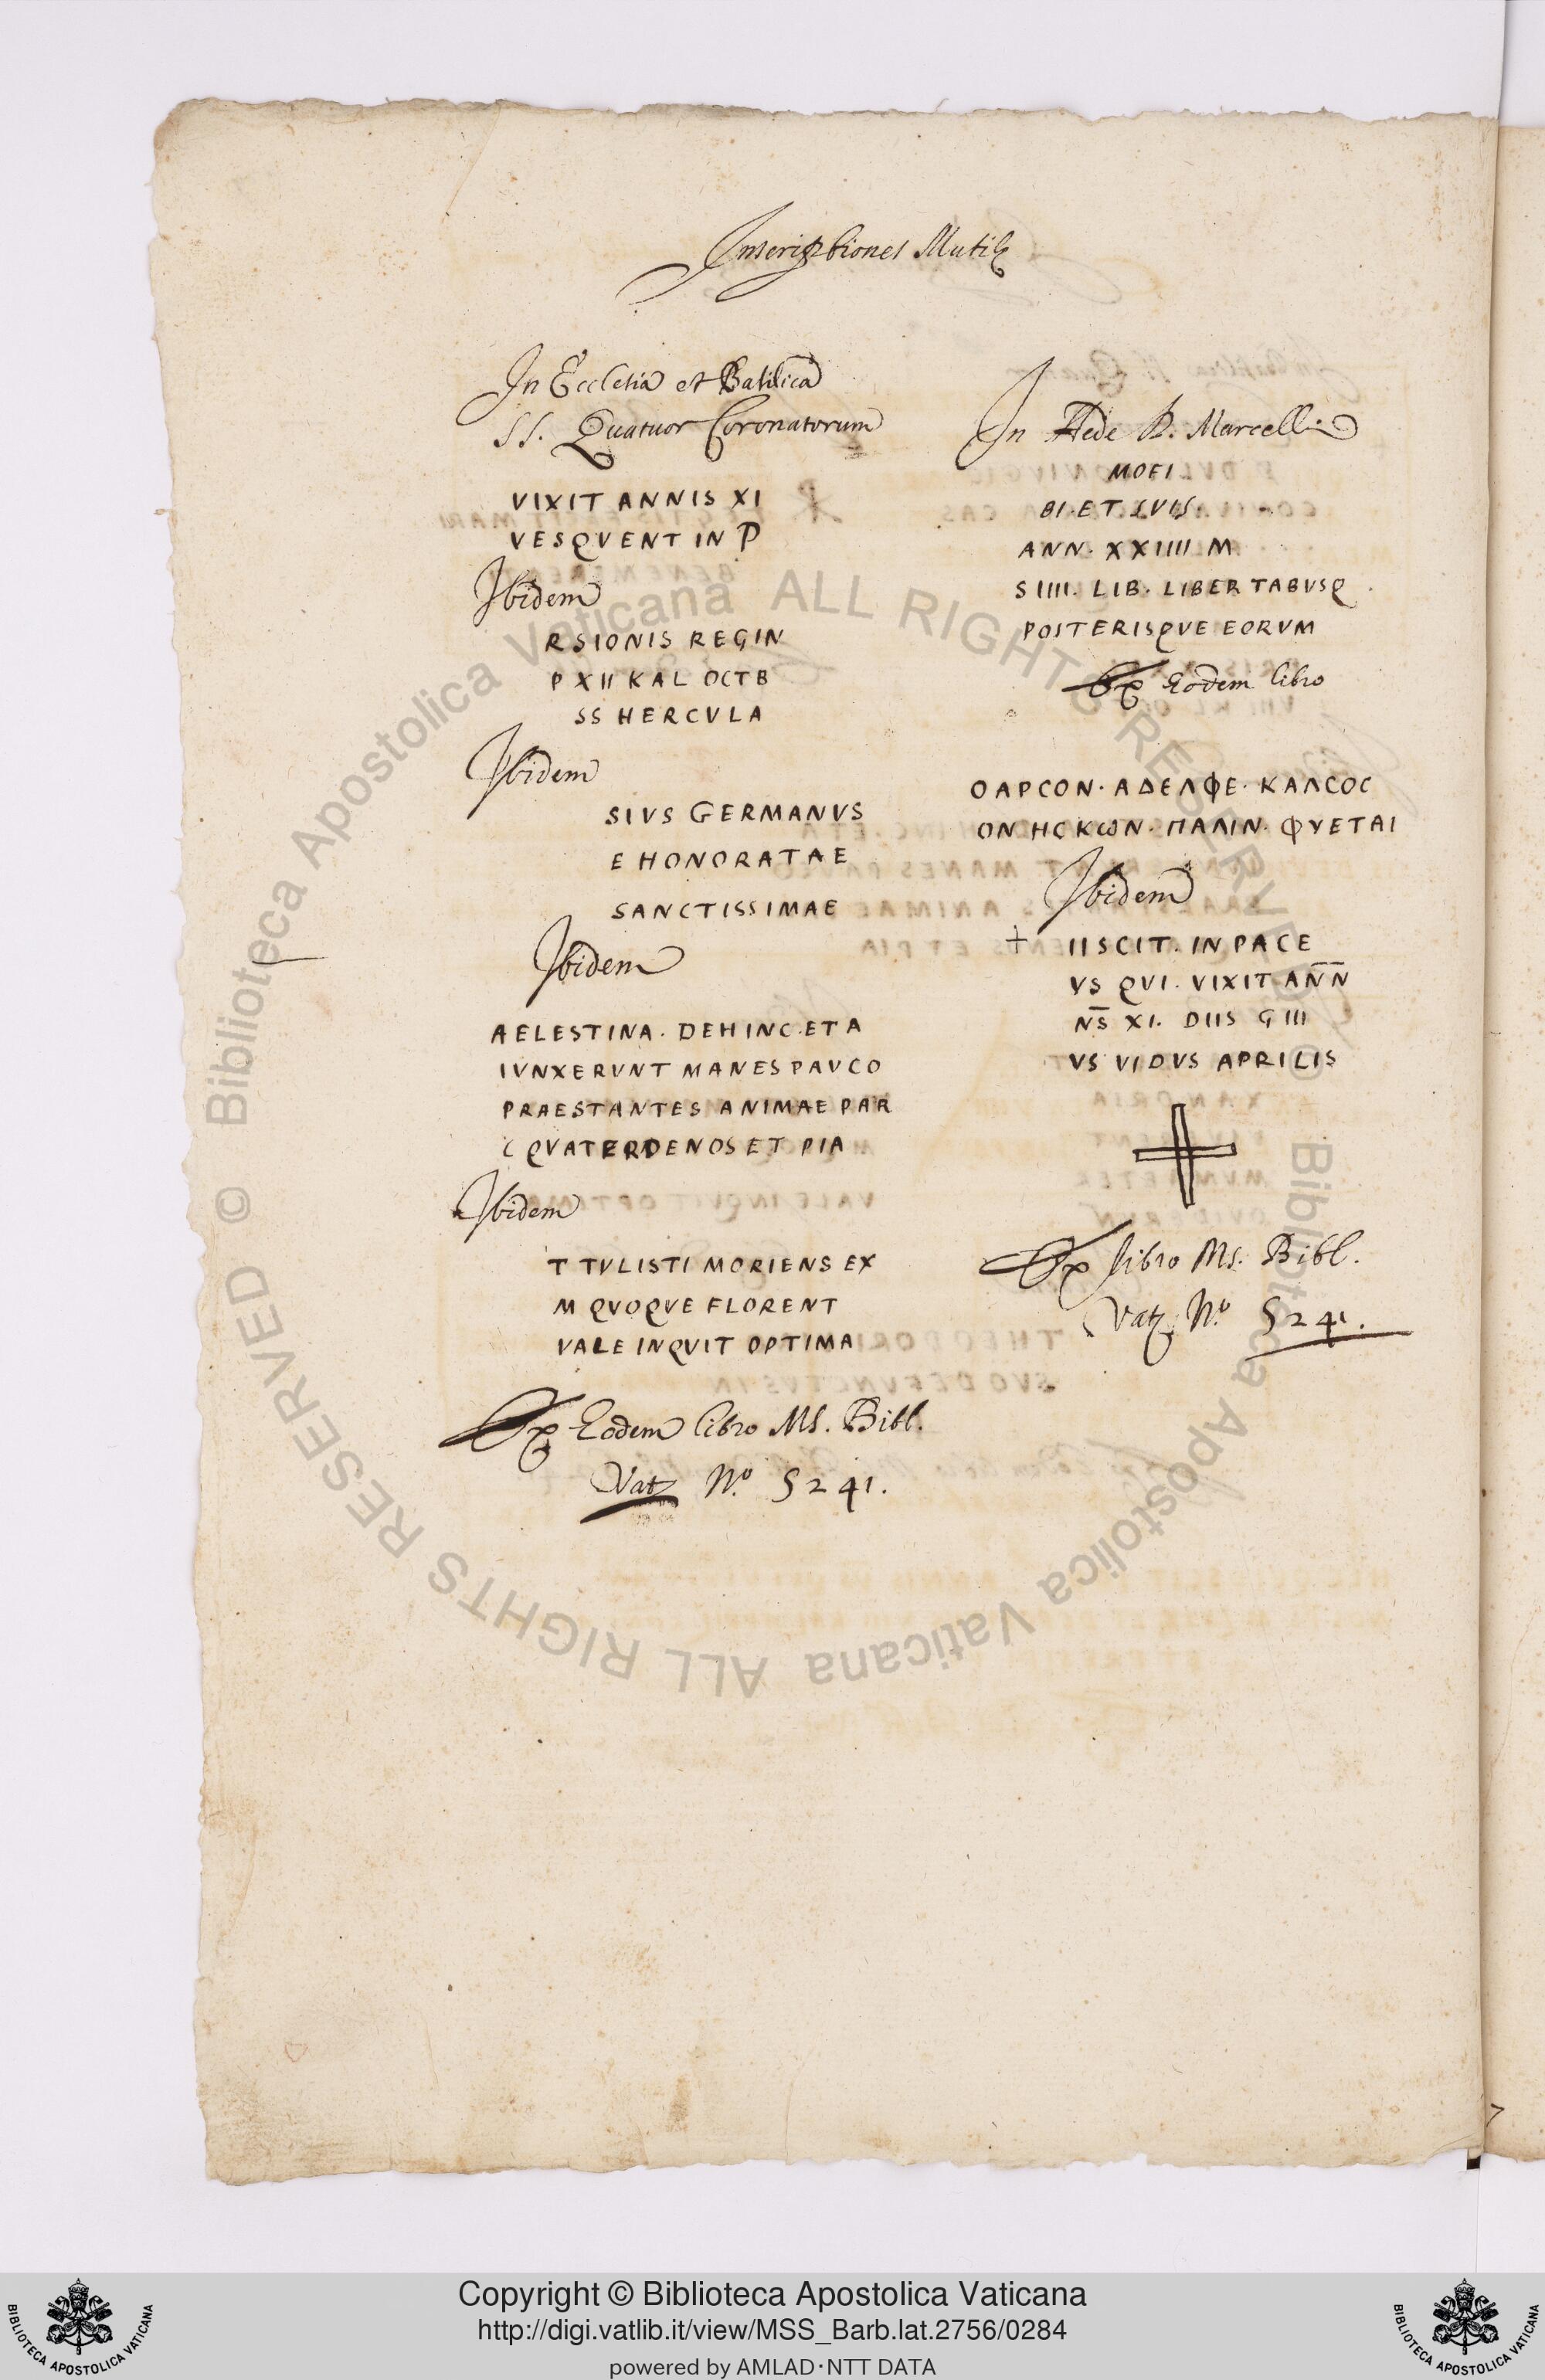 Inscriptiones Mutilę
In Ecclesia et Basilica
SS. Quatuor Coronatorum
VIXIT ANNIS XI
VESQVENT IN P
Ibidem
RSIONIS REGIN
P XII KAL OCTB
SS HERCVLA
Ibidem
SIVS GERMANVS
E HONORATAE
SANCTISSIMAE
Ibidem
AELESTINA. DEHINC. ET A
IVNXERVNT MANES PAVCO
PRAESTANTES ANIMAE PAR
C QVATERDENOS ET PIA
Ibidem
T TVLISTI MORIENS EX
M QVOQVE FLORENT
VALE INQVIT OPTIMA
Ex Eodem libro MS. Bibl.
Vat. N.º 5241.
In Aede B. Marcelli
MOEI
BI. ET LVIS
ANN. XXIIII M
S IIII. LIB. LIBERTABVSQ.
POSTERISQVE EORVM
Ex Eodem libro
ΟΑΡCΟΝ· ΑΔΕΛΦΕ· ΚΑΛCΟC
ΟΝ ΗCΚωΝ· ΠΑΛΙΝ· ΦΥΕΤΑΙ
Ibidem
+ IISCIT. IN PACE
VS QVI. VIXIT AN̅N̅
N̅S̅ XI. DIIS G III
VS VIDVS APRILIS
Ex libro Ms. Bibl.
Vat. N.º 5241.
Biblioteca Apostolica Vaticana ALL RIGHTS RESERVED ©
Biblioteca Apostolica Vaticana ALL RIGHTS RESERVED ©
Copyright © Biblioteca Apostolica Vaticana
http://digi.vatlib.it/view/MSS_Barb.lat.2756/0284
powered by AMLAD·NTT DATA
BIBLIOTECA APOSTOLICA VATICANA
BIBLIOTECA APOSTOLICA VATICANA